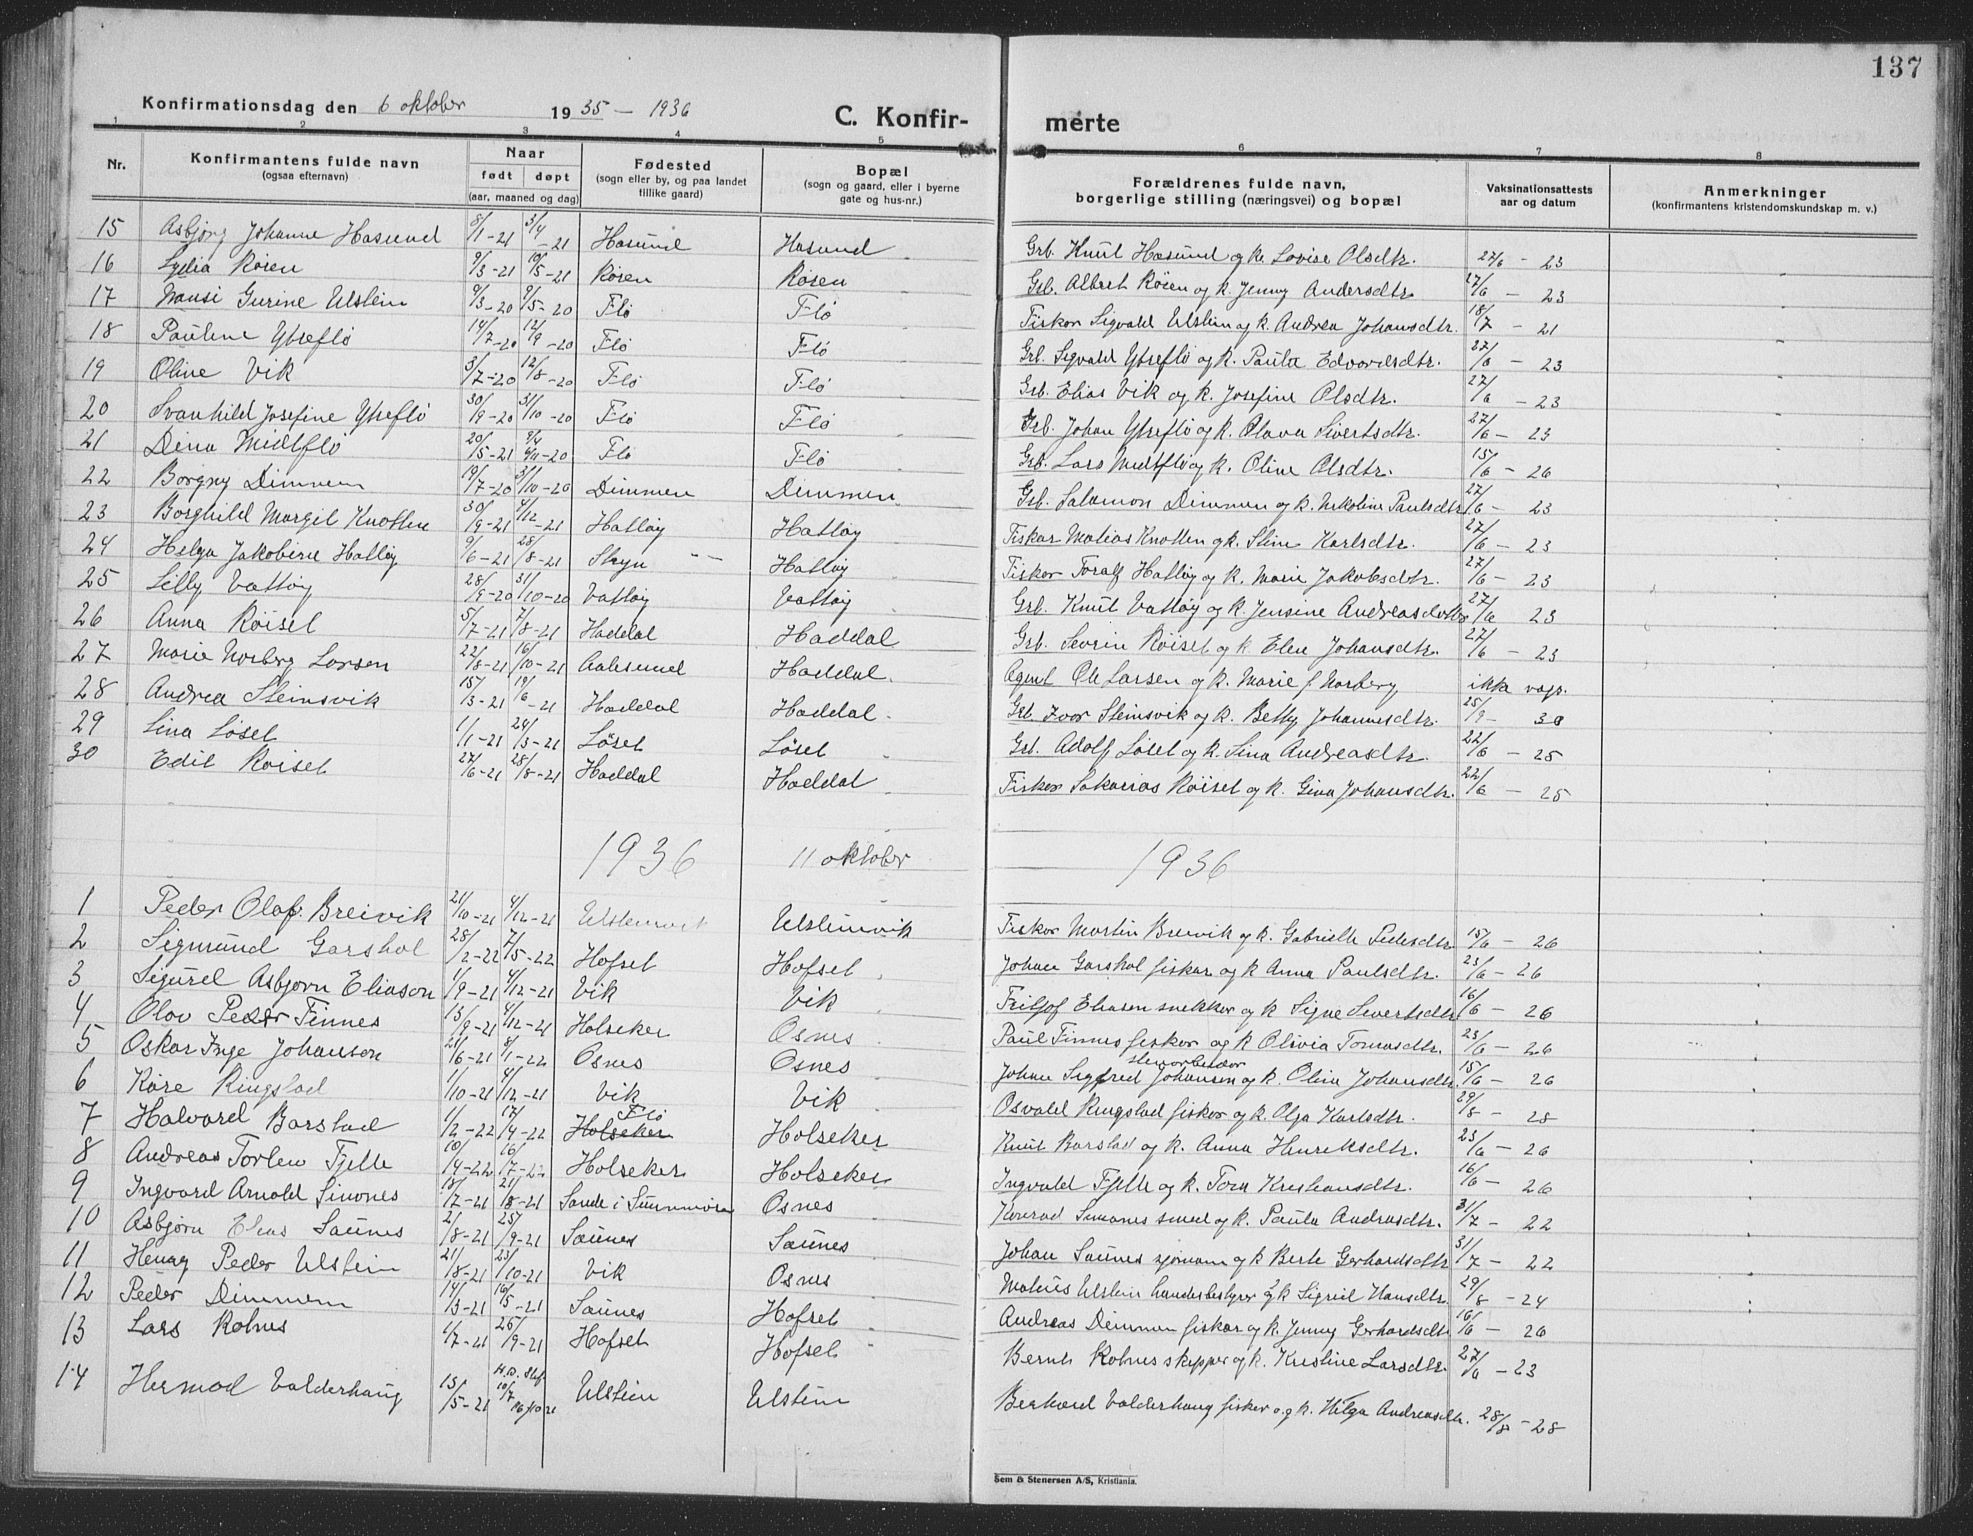 137
Konfirmationsdag den 6 oktober 1935 – 1936 C. Konfir- merte
1 2 3 4 5 6 7 8
Nr. Konfirmantens fulde navn (ogsaa efternavn) Naar født døpt (aar, maaned og dag) Fødested (sogn eller by, og paa landet tillike gaard) Bopæl (sogn og gaard, eller i byerne gate og hus-nr.) Forældrenes fulde navn, borgerlige stilling (næringsvei) og bopæl Vaksinationsattests aar og datum Anmerkninger (konfirmantens kristendomskundskap m. v.)
15 Asbjørg Johanne Hasund 8/1-21 3/4-21 Hasund Hasund Grb. Knut Hasund og k. Lovise Olsdtr. 27/6 - 23
16 Lydia Røsen 9/3-21 10/5-21 Røsen Røsen Grb. Albert Røsen og k. Jenny Andersdtr 27/6 - 23
17 Nansi Gurine Ulstein 9/3-20 9/5-20 Flø Flø Fisker Sigvald Ulstein og k. Andrea Johansdtr. 18/7 - 21
18 Pauline Ytreflø 14/7-20 12/9-20 Flø Flø Grb. Sigvald Ytreflø og k. Paula Edvardsdtr. 27/6 - 23
19 Oline Vik 3/7-20 12/8-20 Flø Flø Grb. Elias Vik og k. Josefine Olsdtr. 27/6 - 23
20 Svanhild Josefine Ytreflø 30/9-20 31/10-20 Flø Flø Grb. Johan Ytreflø og k. Olava Sivertsdtr. 27/6 - 23
21 Dina Midtflø 20/5-21 Flø Flø Grb. Lars Midtflø og k. Oline Olsdtr. 15/6 - 26
22 Borgny Dimmen 19/7-20 31/10-20 Dimmen Dimmen Grb. Salamon Dimmen og k. Nikoline Paulsdtr 27/6 - 23
23 Borghild Margit Knotten 30/9-21 4/12-21 Hatløy Hatløy Fisker Matias Knotten og k. Stine Karlsdtr. 27/6 - 23
24 Helga Jakobine Hatløy 9/6-21 28/8-21 Stryn Hatløy Fisker Toralf Hatløy og k. Marie Jakobsdtr. 27/6 - 23
25 Lilly Vattøy 28/9-20 31/10-20 Vattøy Vattøy Grb. Knut Vattøy og k. Jensine 27/6 23
26 Anna Røiset 5/7-21 7/8-21 Haddal Haddal Grb. Severin Røiset og k. Elen Johansdtr. 27/6 - 23
27 Marie Norberg Larsen 22/8-21 16/10-21 Aalesund Haddal. Agent Ole Larsen og k. Marie f Norberg ikke vaps.
28 Andrea Steinsvik 15/3-21 19/6-21 Haddal Haddal. Grb. Ivar Steinsvik og k. Betty Johannesdtr. 25/9 - 30
29 Lina Løset 1/1-21 24/3-21 Løset Løset Grb. Adolf Løset og k. Lina Andreasdtr. 22/6 - 25
30 Edit Røiset 27/6-21 28/8-21 Haddal Haddal Fisker Sakarias Røiset og k. Gina Johansdtr. 22/6 - 25
1936 11 oktober 1936
1 Peder Olaf Breivik 21/10-21 4/12-21 Ulsteinvik Ulsteinvik Fisker Martin Breivik og k. Gabrielle Pedersdtr 15/6 - 26
2 Sigmund Garshol 28/2-22 7/5-22 Hofset Hofset Johan Garshol fisker og k Anna Paulsdtr. 23/6 - 26
3 Sigurd Asbjørn Eliason 1/9-21 4/12-21 Vik Vik Fritjof Eliasen snekker og k Signe Sivertsdtr 16/6 - 26
4 Olav Peder Finnes 13/9-21 4/12-21 Holseker Osnes Paul Finnes fisker og k Olivia Tomasdtr. 23/6 - 26
5 Oskar Inge Johanson 21/6-21 8/1-22 Osnes Osnes Johan Sigfred stenarbeider Johansen og k. Olina Johansdtr. 15/6 - 26
6 Kåre Ringstad 1/10-21 4/12-21 Vik Vik Osvald Ringstad fisker og k. Olga Karlsdtr. 29/8 - 28
7 Halvard Barstad 1/2-22 17/4-22 Flø Holseker Holseker Knut Barstad og k. Anna Henriksdtr. 23/6 - 26
8 Andreas Torlew Fjelle 10/4-22 16/7-22 Holseker Holseker Ingvald Fjelle og k. Tora Kristiansdtr. 16/6 - 26
9 Ingvard Arnold Simones 13/7-21 21/8-21 Sande i Sunnmøre Osnes Konrad Simones smed og k. Paula Andreasdtr. 31/7 - 22
10 Asbjørn Elias Saunes 2/8-21 25/9-21 Saunes Saunes Johan Saunes sjømann og k Berte Gerhardsdtr 31/7 - 22
11 Henry Peder Ulstein 21/8-21 23/10-21 Vik Osnes Matias Ulstein handesbestyrer og k Sigrid Hansdtr. 29/8 - 24
12 Peder Dimmem 14/3-21 16/5-21 Saunes Hofset Andreas Dimmen fisker og k. Jenny Gerhardsdtr 16/6 - 26
13 Lars Rotnes 1/7-21 26/9-21 Hofset Hofset Bernt Rotnes skipper og k. Kristine Larsdtr. 27/6 - 23
14 Hermod Valderhaug 15/5-21 10/7 16/10 21 Ulstein Ulstein Berhard Valderhaug fisker og k. Helga Andreasdtr. 28/8 - 28
Sem & Stenersen A/S, Kristiania.